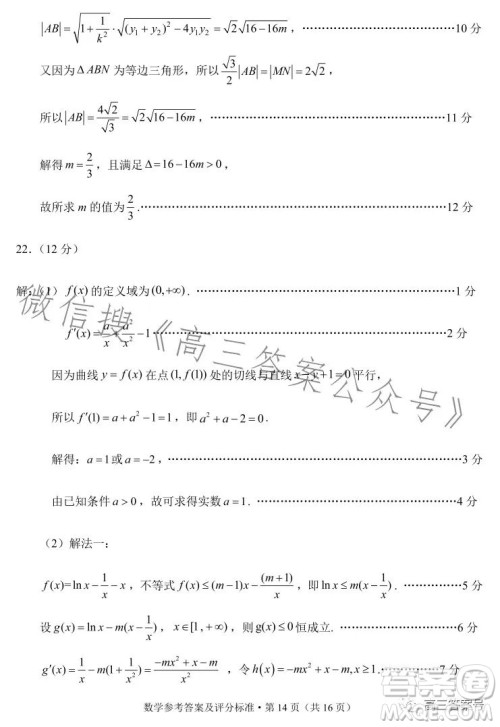 |AB|=√(1+1/k²)·√((y₁+y₂)²-4y₁y₂)=√2√(16-16m), ……………………………10 分
又因为 ΔABN 为等边三角形，所以 √3/2|AB|=|MN|=2√2，
所以|AB|=4√2/√3=√2√(16-16m)，……………………………11 分
解得 m=2/3，且满足 Δ=16-16m>0，
故所求 m 的值为 2/3.……………………………12 分
22.（12 分）
解：（1） f(x) 的定义域为(0,+∞)．……………………………1 分
f′(x)=a/x+a²/x²-1……………………………2 分
因为曲线 y=f(x) 在点(1, f(1)) 处的切线与直线 x-y+1=0 平行，
所以 f′(1)=a+a²-1=1，即 a²+a-2=0．
解得：a=1或a=-2，……………………………3 分
由已知条件 a>0，故可求得实数 a=1．……………………………4 分
（2）解法一：
f(x)=ln x-1/x-x，不等式 f(x)≤(m-1)x-(m+1)/x，即 ln x≤m(x-1/x)．……………5 分
设 g(x)=ln x-m(x-1/x)，x∈[1,+∞)，则g(x)≤0 恒成立.……………………6 分
g′(x)=1/x-m(1+1/x²)=(-mx²+x-m)/x² ，令 h(x)=-mx²+x-m,x≥1.……………7 分
数学参考答案及评分标准・第 14 页（共 16 页）
微信搜《高三答案公众号》
高三答案号